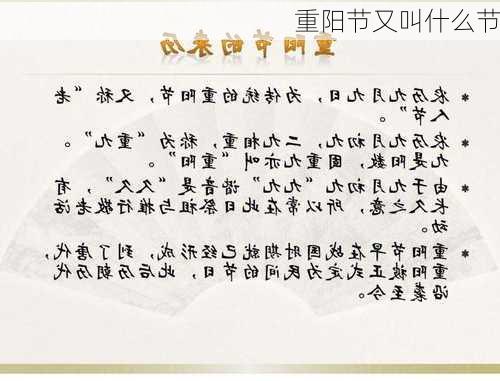 重阳节又叫什么节
重阳节的来历
农历九月九日，为传统的重阳节，又称“老
人节”。
农历九月初九，二九相重，称为“重九”。
九是阳数，固重九亦叫“重阳”。
由于九月初九“九九”谐音是“久久”，有
长久之意，所以常在此日祭祖与推行敬老活
动。
重阳节早在战国时期就已经形成，到了唐代，
重阳被正式定为民间的节日，此后历朝历代
沿袭至今。